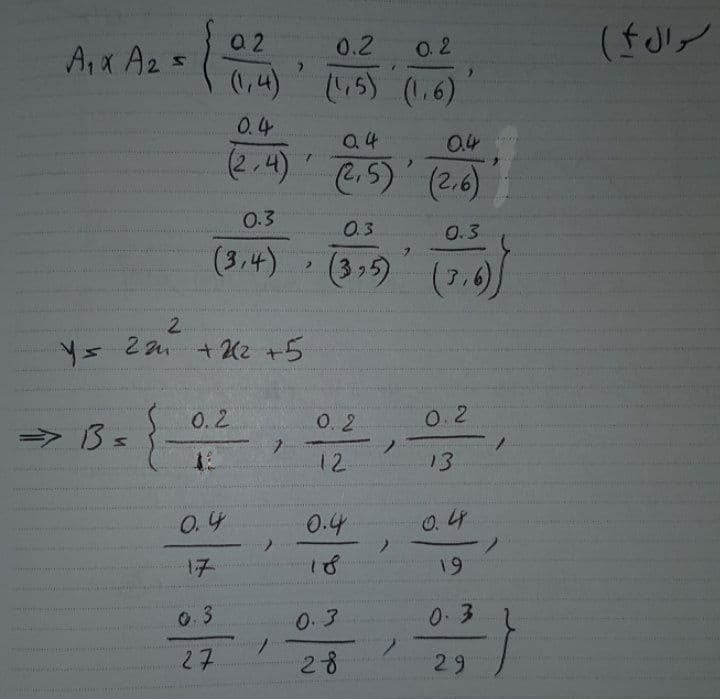 سوال ۴)
A₁ x A₂ = { 0.2/(1,4) , 0.2/(1,5) , 0.2/(1,6) ,
0.4/(2,4) , 0.4/(2,5) , 0.4/(2,6) ,
0.3/(3,4) , 0.3/(3,5) , 0.3/(3,6) }
y = 2x₁² + x₂ + 5
⇒ B = { 0.2/11 , 0.2/12 , 0.2/13 ,
0.4/17 , 0.4/18 , 0.4/19 ,
0.3/27 , 0.3/28 , 0.3/29 }